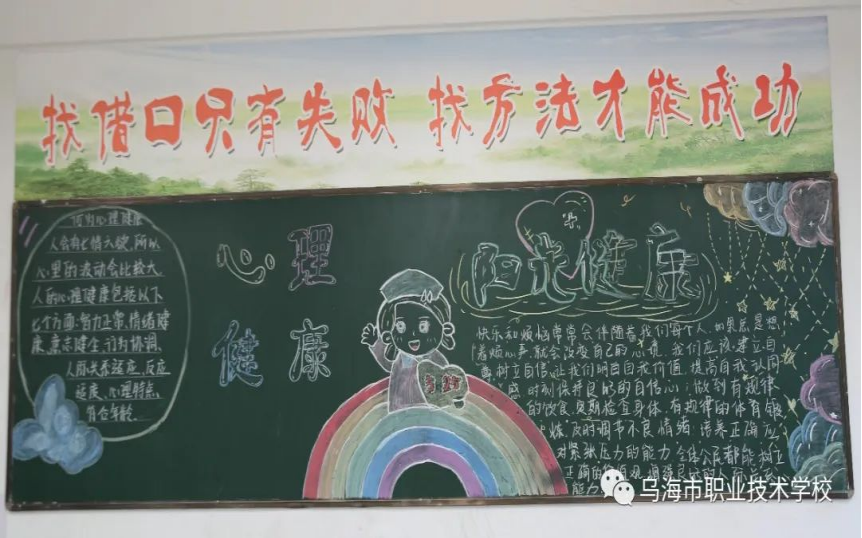 找借口只有失败 找方法才能成功
何为心理健康
人会有七情六欲,所以
心里的波动会比较大.
人的心理健康包括以下
七个方面:智力正常、情绪健
康、意志健全、行为协调、
人际关系适应、反应
适度、心理特点
符合年龄.
心理
健康
阳光健康
快乐和烦恼常常会伴随着我们每个人,如果总是想
着烦心事,就会没变自己的心境.我们应该建立自
树立自信,让我们明白自我价值,提高自我认同
感,时刻保持良好的自信心;做到有规律
的饮食,定期检查身体,有规律的体育锻
炼,及时调节不良情绪,培养正确应
对紧张压力的能力,全体公民都能树立
正确的
能力
乌海市职业技术学校